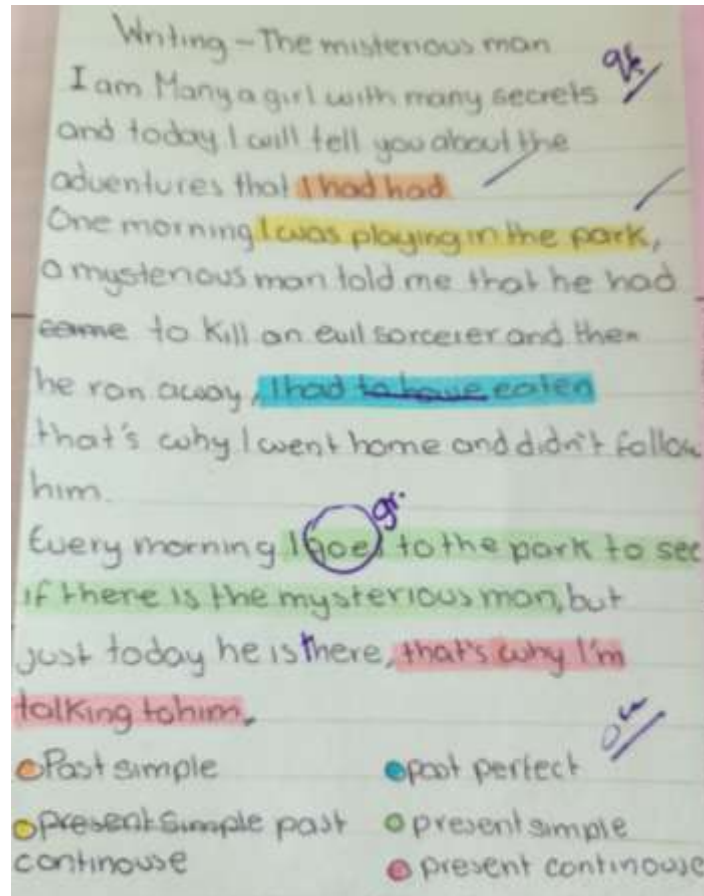 Writing - The misterious man
I am Manya girl with many secrets
and today I will tell you about the
adventures that I had had
One morning I was playing in the park,
a mysterious man told me that he had
came to kill an evil sorcerer and then
he ran away, I had to have eaten
that's why I went home and didn't follow
him.
gr.
Every morning I goes to the park to see
if there is the mysterious man, but
just today he is there, that's why I'm
talking to him.
Past simple
past perfect
present simple past
continouse
present simple
present continouse